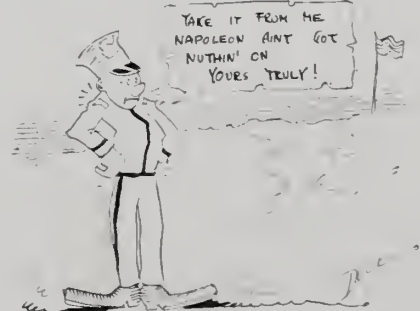 TAKE IT FROM ME
NAPOLEON AINT GOT
NUTHIN' ON
YOURS TRULY!